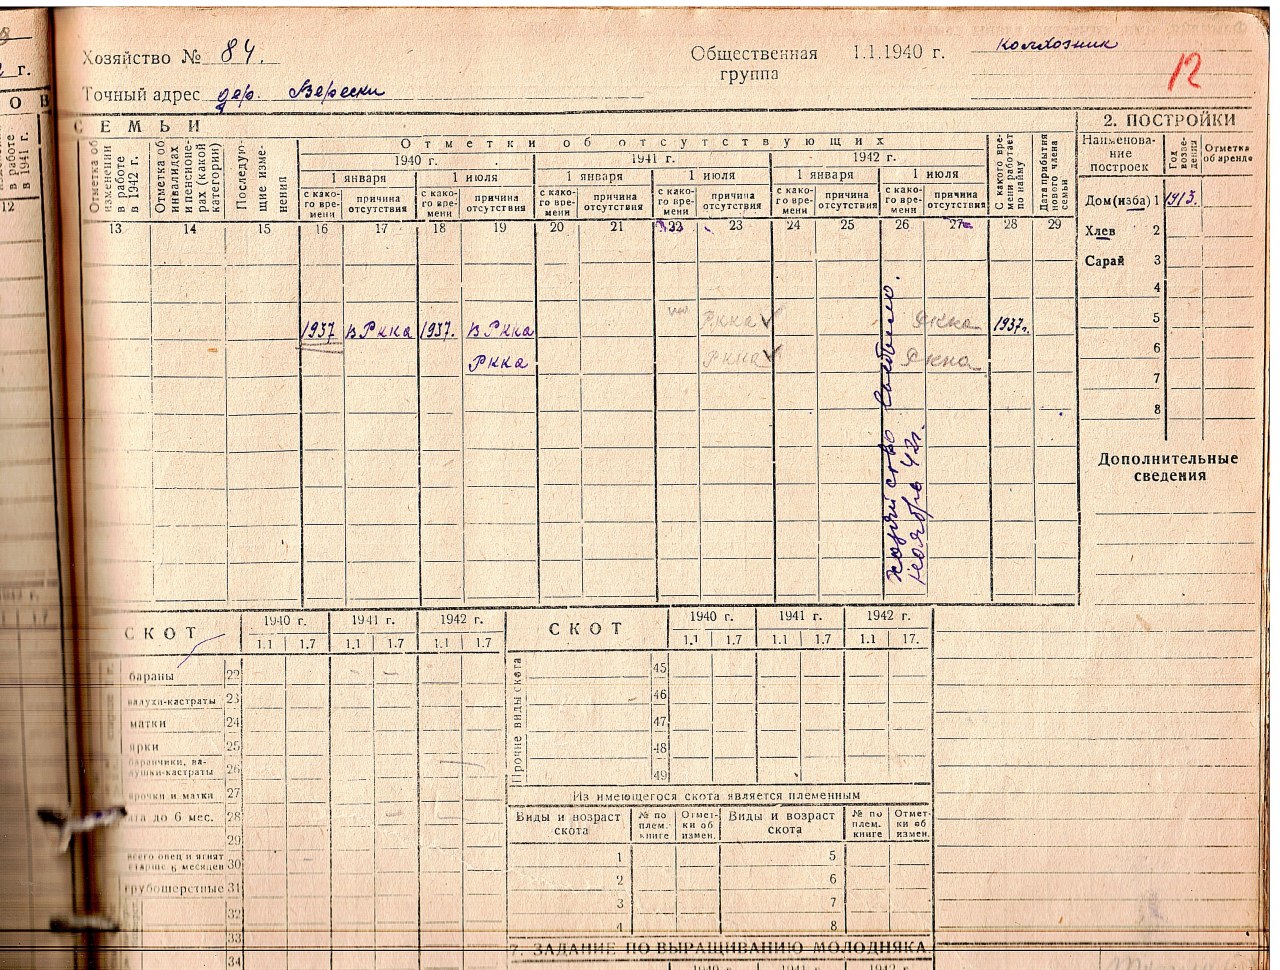 г.
Хозяйство № 84.
Общественная группа 1.1.1940 г. колхозник
12
Точный адрес дер. Верески
ОВ
СЕМЬИ
2. ПОСТРОЙКИ
в работе в 1941 г.
12
Отметка об изменении в работе в 1942 г.
Отметка об инвалидах и пенсионерах (какой категории)
Последующие изменения
Отметки об отсутствующих
1940 г. 1941 г. 1942 г.
1 января 1 июля 1 января 1 июля 1 января 1 июля
с како-го вре-мени причина отсутствия с како-го вре-мени причина отсутствия с како-го вре-мени причина отсутствия с како-го вре-мени причина отсутствия с како-го вре-мени причина отсутствия с како-го вре-мени причина отсутствия
С какого вре-мени работает по найму
Дата прибытия нового члена семьи
Наименова-ние построек
Год возве-дения
Отметка об аренде
13 14 15 16 17 18 19 20 21 22 23 24 25 26 27 28 29
Дом (изба) 1 1913.
Хлев 2
Сарай 3
4
5
6
7
8
1937 в Ркка 1937. в Ркка Ркка Ркка 1937г.
Ркка Ркка Ркка
хозяйство
ноября 42г.
Дополнительные сведения
СКОТ
1940 г. 1941 г. 1942 г.
1.1 1.7 1.1 1.7 1.1 1.7
бараны 22
валухи-кастраты 23
матки 24
ярки 25
баранчики, ва-лушки-кастраты 26
ярочки и матки 27
до 6 мес. 28
29
всего овец и ягнят старше 6 месяцев 30
грубошерстные 31
32
33
34
СКОТ
1940 г. 1941 г. 1942 г.
1.1 1.7 1.1 1.7 1.1 17.
Прочие виды скота
45
46
47
48
49
Из имеющегося скота является племенным
Виды и возраст скота № по плем. книге Отмет-ки об измен. Виды и возраст скота № по плем. книге Отмет-ки об измен.
1 5
2 6
3 7
4 8
7. ЗАДАНИЕ ПО ВЫРАЩИВАНИЮ МОЛОДНЯКА
1940 г. 1941 г. 1942 г.